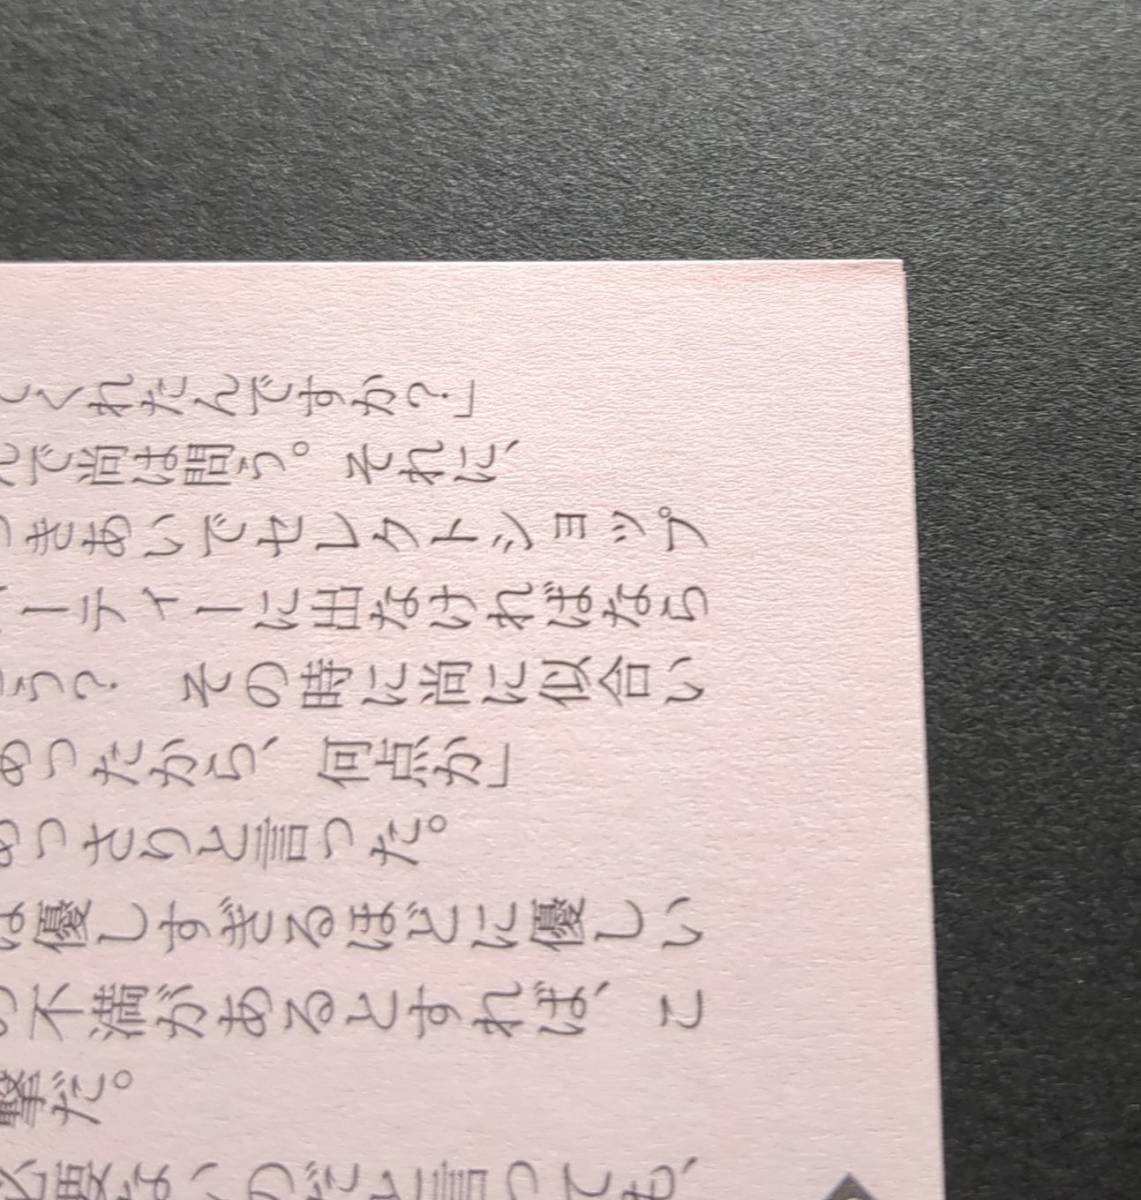 くれたんですか？」
で尚は問う。それに、
きあいでセレクトショップ
ーティーに出なければなら
う？　その時に尚に似合い
あったから、何点か」
あっさりと言った。
は優しすぎるほどに優しい
の不満があるとすれば、こ
撃だ。
ないのだと言っても、